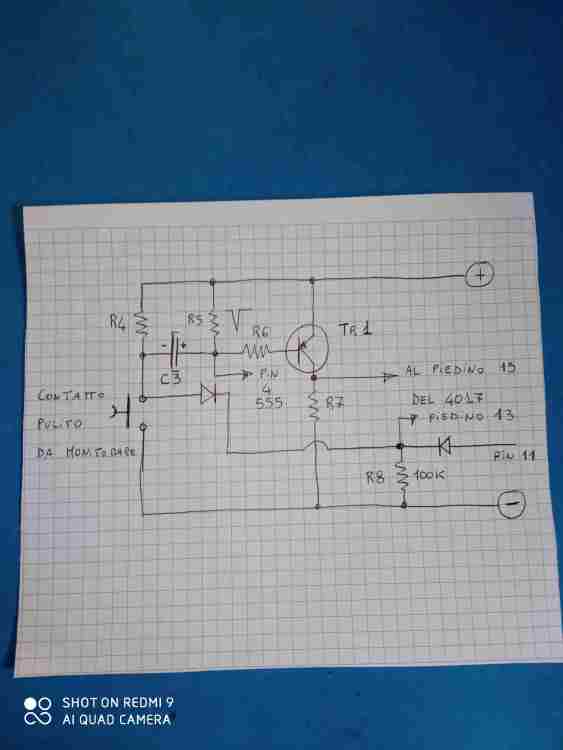 +
R4
R5
R6
TR1
- +
C3
PIN
4
555
AL PIEDINO 15
DEL 4017
CONTATTO
PULITO
DA MONITORARE
R7
PIEDINO 13
PIN 11
R8
100K
-
SHOT ON REDMI 9
AI QUAD CAMERA